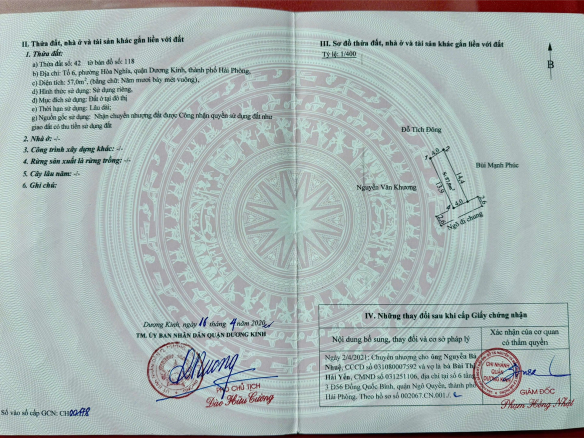 II. Thửa đất, nhà ở và tài sản khác gắn liền với đất
1. Thửa đất:
a) Thửa đất số: 42 tờ bản đồ số: 118
b) Địa chỉ: Tổ 6, phường Hòa Nghĩa, quận Dương Kinh, thành phố Hải Phòng,
c) Diện tích: 57,0m², (bằng chữ: Năm mươi bảy mét vuông),
d) Hình thức sử dụng: Sử dụng riêng,
đ) Mục đích sử dụng: Đất ở tại đô thị
e) Thời hạn sử dụng: Lâu dài;
g) Nguồn gốc sử dụng: Nhận chuyển nhượng đất được Công nhận quyền sử dụng đất như
giao đất có thu tiền sử dụng đất
2. Nhà ở: -/-
3. Công trình xây dựng khác: -/-
4. Rừng sản xuất là rừng trồng: -/-
5. Cây lâu năm: -/-
6. Ghi chú:
Dương Kinh, ngày 16 tháng 4 năm 2020
TM. ỦY BAN NHÂN DÂN QUẬN DƯƠNG KINH
PHÓ CHỦ TỊCH
Đào Hữu Cương
Số vào sổ cấp GCN: CH
III. Sơ đồ thửa đất, nhà ở và tài sản khác gắn liền với đất
Tỷ lệ: 1/400
B
Đỗ Tích Đông
1 4,0 2
Bùi Mạnh Phúc
Nguyễn Văn Khương
14,4
13,9
4,0
2,6
2,6
Ngõ đi chung
IV. Những thay đổi sau khi cấp Giấy chứng nhận
Nội dung bổ sung, thay đổi và cơ sở pháp lý
Xác nhận của cơ quan
có thẩm quyền
2/4/2021: Chuyển nhượng cho ông Nguyễn Bá
Nhuệ, CCCD số 031080007592 và vợ là bà Bùi Thị
Hải Yến, CMND số 031251106, địa chỉ tại số 6 tầng
3 D56 Đồng Quốc Bình, quận Ngô Quyền, thành phố
Hải Phòng. Theo hồ sơ số 002067.CN.001./.
CHI NHÁNH
QUẬN
DƯƠNG KINH
GIÁM ĐỐC
Phạm Hồng Nhật